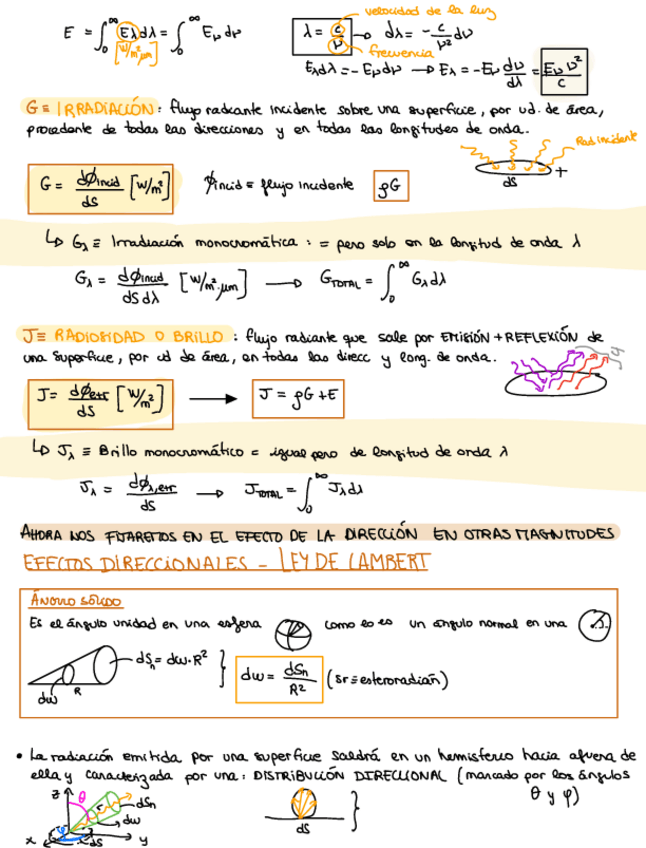 velocidad de la luz
E = ∫₀^∞ Eλ dλ = ∫₀^∞ Eν dν
λ = c/ν → dλ = - c/ν² dν
[W/m²·μm]
frecuencia
Eλ dλ = - Eν dν → Eλ = - Eν dν/dλ = Eν ν²/c
G ≡ IRRADIACIÓN: flujo radiante incidente sobre una superficie, por ud. de área,
procedente de todas las direcciones y en todas las longitudes de onda.
Rad incidente
G = dϕincid/dS [W/m²] ϕincid ≡ flujo incidente ρG
dS
↳ Gλ ≡ Irradiación monocromática : = pero solo en la longitud de onda λ
Gλ = dϕincid/dS dλ [W/m²·μm] → GTOTAL = ∫₀^∞ Gλ dλ
J ≡ RADIOSIDAD O BRILLO : flujo radiante que sale por EMISIÓN + REFLEXIÓN de
una superficie, por ud de área, en todas las direcc y long. de onda.
J = dϕe+r/dS [W/m²] → J = ρG + E
↳ Jλ ≡ Brillo monocromático = igual pero de longitud de onda λ
Jλ = dϕλ,e+r/dS → JTOTAL = ∫₀^∞ Jλ dλ
AHORA NOS FIJAREMOS EN EL EFECTO DE LA DIRECCIÓN EN OTRAS MAGNITUDES
EFECTOS DIRECCIONALES - LEY DE LAMBERT
ÁNGULO SÓLIDO
Es el ángulo unidad en una esfera como lo es un ángulo normal en una
dSn = dω·R² } dω = dSn/R² (sr ≡ estereoradián)
dω R
• La radiación emitida por una superficie saldrá en un hemisferio hacia afuera de
ella y caracterizada por una: DISTRIBUCIÓN DIRECCIONAL (marcado por los ángulos
θ y φ)
z θ r dSn
dω
x φ dS y
dS }